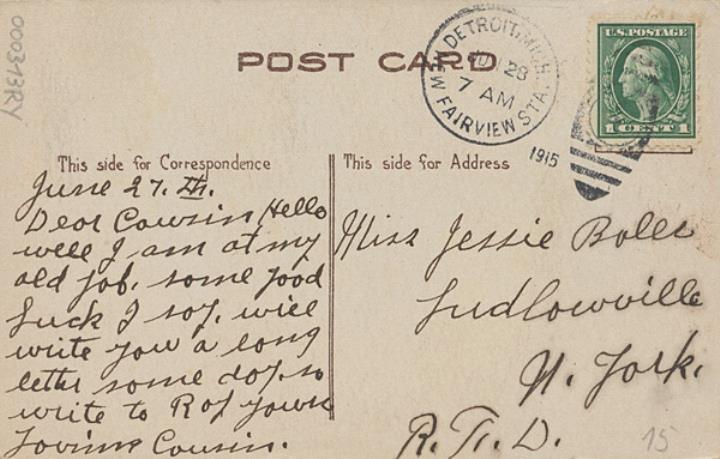 000313RY
POST CARD
NEW DETROIT, MICH.
JUN 28
7 AM
FAIRVIEW STA.
1915
U.S. POSTAGE
1 CENT 1
This side for Correspondence
This side for Address
June 27. th.
Dear Cousin Hello
well I am at my
old job. some good
luck I say. will
write you a long
letter some day. so
write to Ray yours
Loving Cousin.
Miss Jessie Bolle
Ludlowville
N. York.
R. F. D.
15